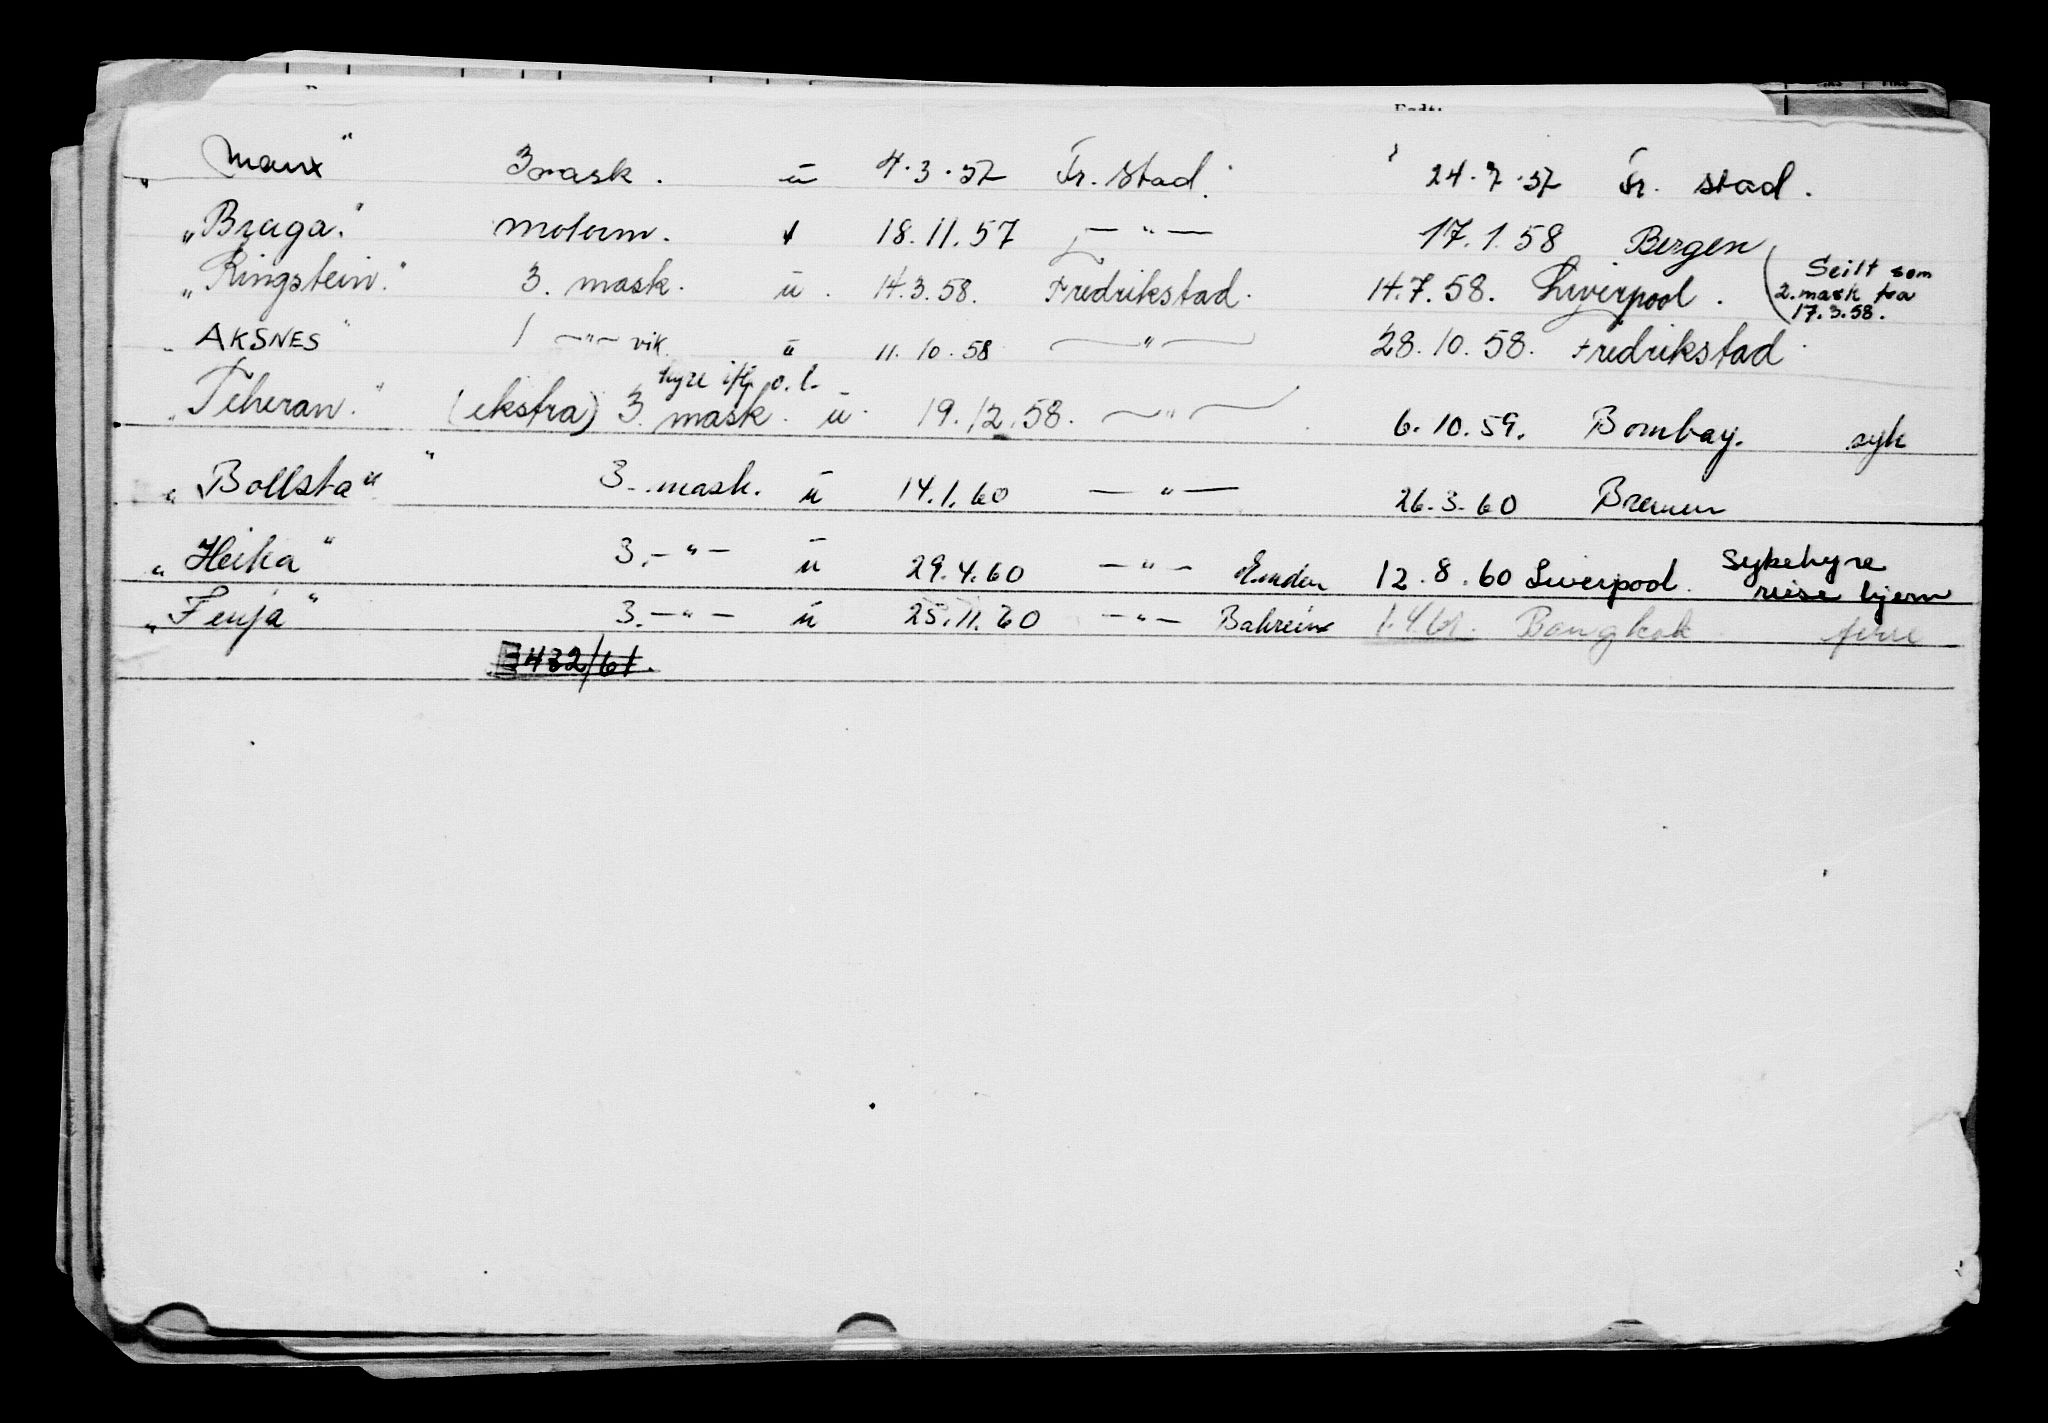 „ Manx " 3 mask. u 4.3.57 Fr. stad. 24.7.57 Fr. stad.
„Braga." motorm. 18.11.57 — " — 17.1.58 Bergen
„Ringstein." 3. mask. u. 14.3.58. Fredrikstad. 14.7.58. Liverpool. (Seilt som 2. mask fra 17.3.58.
„ AKSNES " 1 —"— vik. u 11.10.58 — " — 28.10.58. Fredrikstad
hyre iflg. o. l.
„Teheran." (ekstra) 3. mask. u. 19.12.58. — " — 6.10.59. Bombay. syk
„ Bollsta " 3. mask. u 14.1.60 — " — 26.3.60 Bremen
„ Heika " 3. — " — u 29.4.60 — " — Emden 12.8.60 Liverpool. Sykehyre reise hjem
„Fenja " 3. — " — u 25.11.60 — " — Bahrein 1.4.61. Bangkok ferie
432/61.